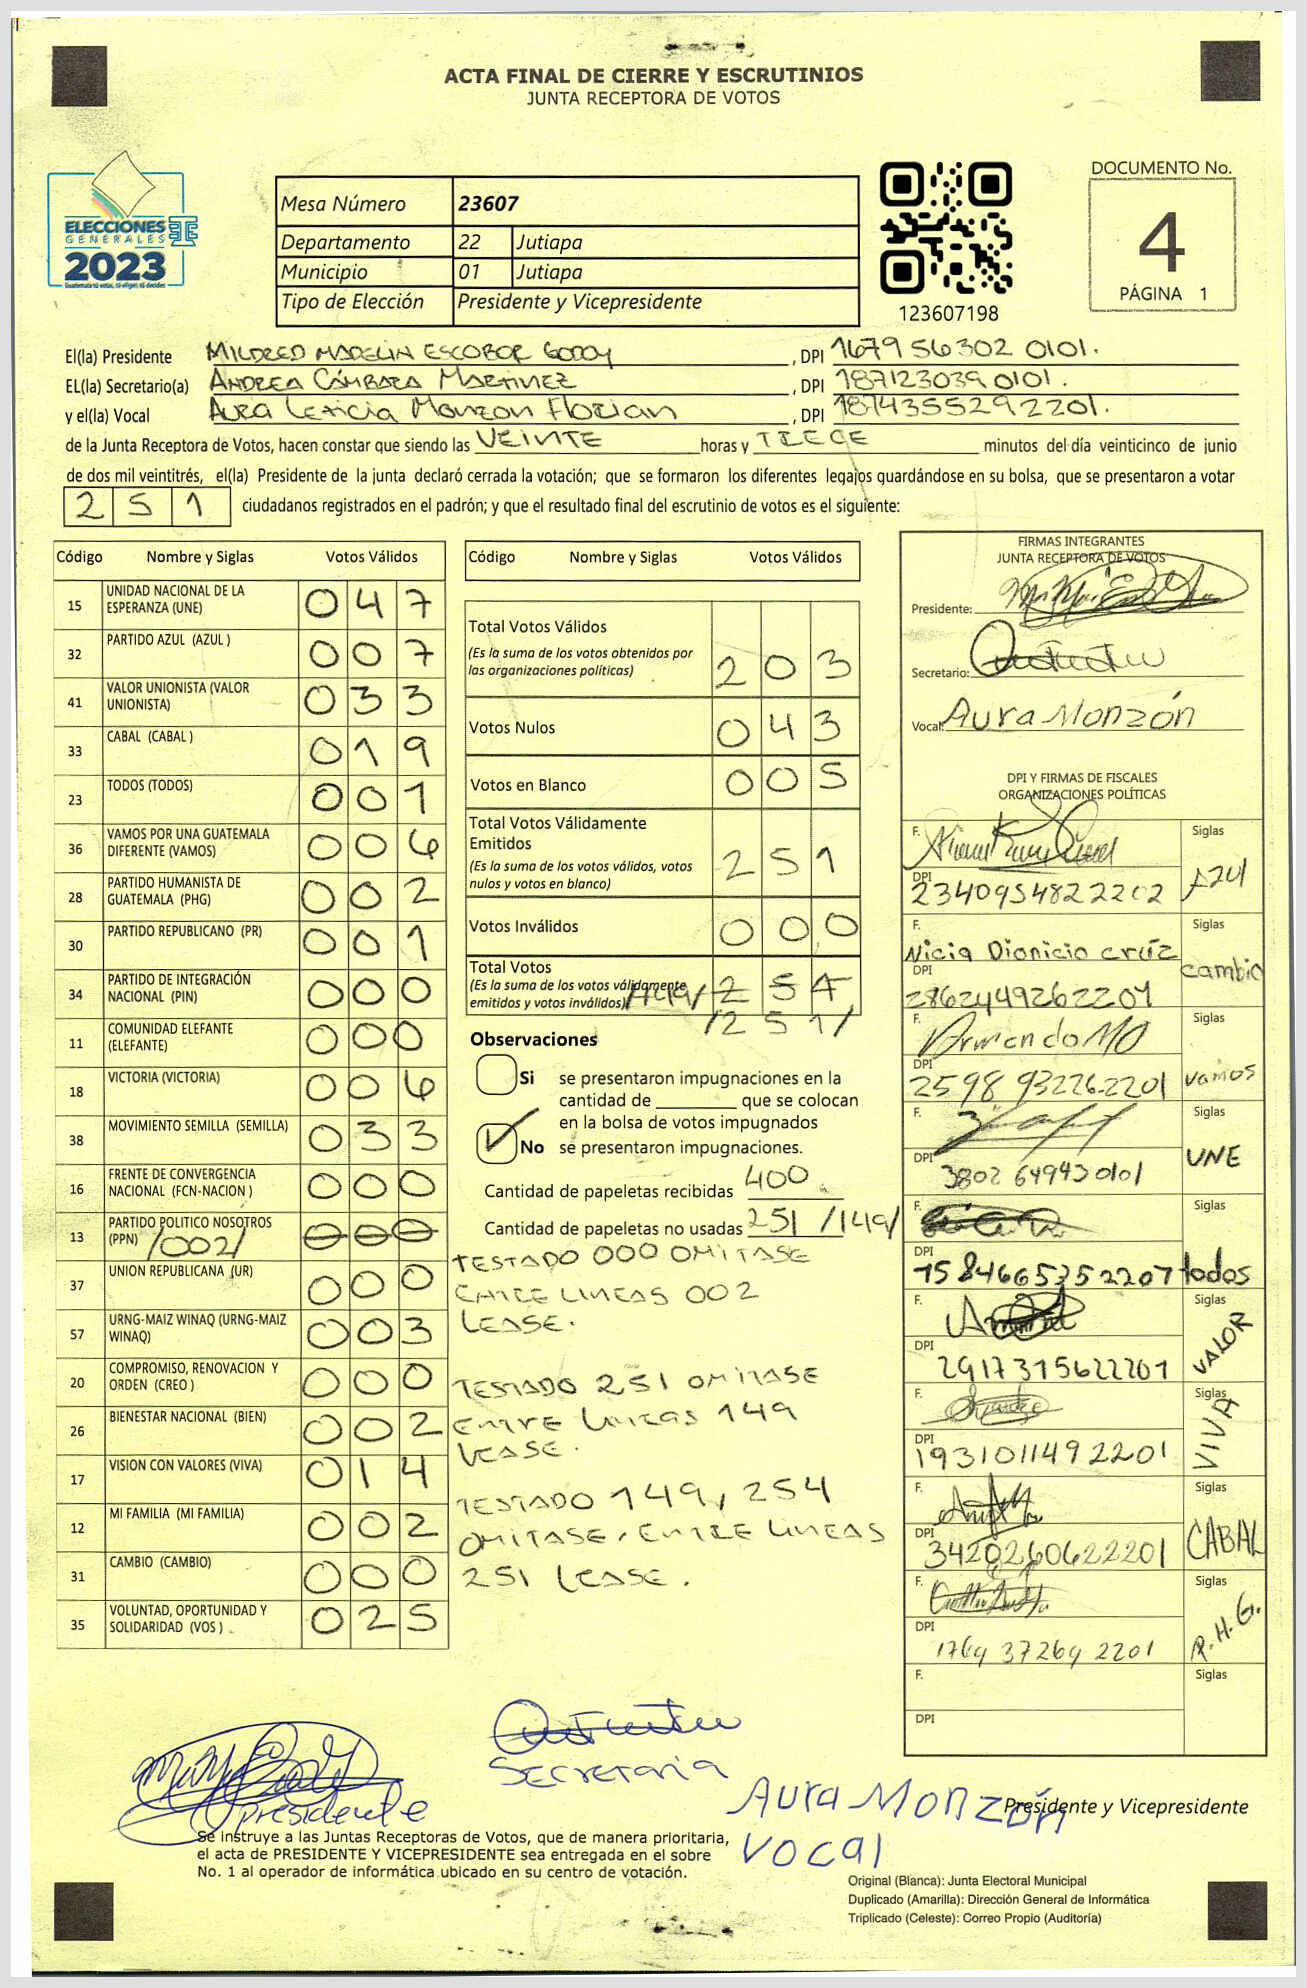 ACTA FINAL DE CIERRE Y ESCRUTINIOS
JUNTA RECEPTORA DE VOTOS
ELECCIONES
GENERALES
2023
Guatemala tú votas, tú eliges, tú decides
Mesa Número 23607
Departamento 22 Jutiapa
Municipio 01 Jutiapa
Tipo de Elección Presidente y Vicepresidente
123607198
DOCUMENTO No.
4
PÁGINA 1
El(la) Presidente MILDRED MADELIN ESCOBOR GODOY, DPI 1679 56302 0101.
EL(la) Secretario(a) ANDREA CÁMBARA MARTINEZ, DPI 187123039 0101.
y el(la) Vocal Aura Leticia Monzon Florian, DPI 1874355292201.
de la Junta Receptora de Votos, hacen constar que siendo las VEINTE horas y TRECE minutos del día veinticinco de junio
de dos mil veintitrés, el(la) Presidente de la junta declaró cerrada la votación; que se formaron los diferentes legajos guardándose en su bolsa, que se presentaron a votar
251 ciudadanos registrados en el padrón; y que el resultado final del escrutinio de votos es el siguiente:
Código Nombre y Siglas Votos Válidos
15 UNIDAD NACIONAL DE LA ESPERANZA (UNE) 047
32 PARTIDO AZUL (AZUL ) 007
41 VALOR UNIONISTA (VALOR UNIONISTA) 033
33 CABAL (CABAL ) 019
23 TODOS (TODOS) 001
36 VAMOS POR UNA GUATEMALA DIFERENTE (VAMOS) 006
28 PARTIDO HUMANISTA DE GUATEMALA (PHG) 002
30 PARTIDO REPUBLICANO (PR) 001
34 PARTIDO DE INTEGRACIÓN NACIONAL (PIN) 000
11 COMUNIDAD ELEFANTE (ELEFANTE) 000
18 VICTORIA (VICTORIA) 006
38 MOVIMIENTO SEMILLA (SEMILLA) 033
16 FRENTE DE CONVERGENCIA NACIONAL (FCN-NACION ) 000
13 PARTIDO POLITICO NOSOTROS (PPN) /002/ 000
37 UNION REPUBLICANA (UR) 000
57 URNG-MAIZ WINAQ (URNG-MAIZ WINAQ) 003
20 COMPROMISO, RENOVACION Y ORDEN (CREO ) 000
26 BIENESTAR NACIONAL (BIEN) 002
17 VISION CON VALORES (VIVA) 014
12 MI FAMILIA (MI FAMILIA) 002
31 CAMBIO (CAMBIO) 000
35 VOLUNTAD, OPORTUNIDAD Y SOLIDARIDAD (VOS ) 025
Código Nombre y Siglas Votos Válidos
Total Votos Válidos
(Es la suma de los votos obtenidos por
las organizaciones políticas) 203
Votos Nulos 043
Votos en Blanco 005
Total Votos Válidamente
Emitidos
(Es la suma de los votos válidos, votos
nulos y votos en blanco) 251
Votos Inválidos 000
Total Votos
(Es la suma de los votos válidamente
emitidos y votos inválidos) /149/ 254
/251/
Observaciones
Si se presentaron impugnaciones en la
cantidad de ________ que se colocan
en la bolsa de votos impugnados
No se presentaron impugnaciones.
Cantidad de papeletas recibidas 400
Cantidad de papeletas no usadas 251 /149/
TESTADO 000 OMITASE
ENTRE LINEAS 002
LEASE.
TESTADO 251 OMITASE
ENTRE LINEAS 149
LEASE.
TESTADO 149, 254
OMITASE, ENTRE LINEAS
251 LEASE.
FIRMAS INTEGRANTES
JUNTA RECEPTORA DE VOTOS
Presidente:
Secretario:
Vocal: Aura Monzón
DPI Y FIRMAS DE FISCALES
ORGANIZACIONES POLÍTICAS
F. Siglas
DPI 2340954822202 AZUL
F. Nicia Dionicio cruz Siglas
DPI 2862449262201 cambio
F. Armando MO Siglas
DPI 2598 93226 2201 vamos
F. Siglas
DPI 3802 64943 0101 UNE
F.
DPI 1584665352207 todos
F. Siglas
DPI 2917315622201 VALOR
F. Siglas
DPI 1931011492201 VIVA
F. Siglas
DPI 3420260622201 CABAL
F. Siglas
DPI 1769 37269 2201 P.H.G.
F. Siglas
DPI
presidente
Secretaria
Aura Monzón
Vocal
Presidente y Vicepresidente
Se instruye a las Juntas Receptoras de Votos, que de manera prioritaria,
el acta de PRESIDENTE Y VICEPRESIDENTE sea entregada en el sobre
No. 1 al operador de informática ubicado en su centro de votación.
Original (Blanca): Junta Electoral Municipal
Duplicado (Amarilla): Dirección General de Informática
Triplicado (Celeste): Correo Propio (Auditoría)